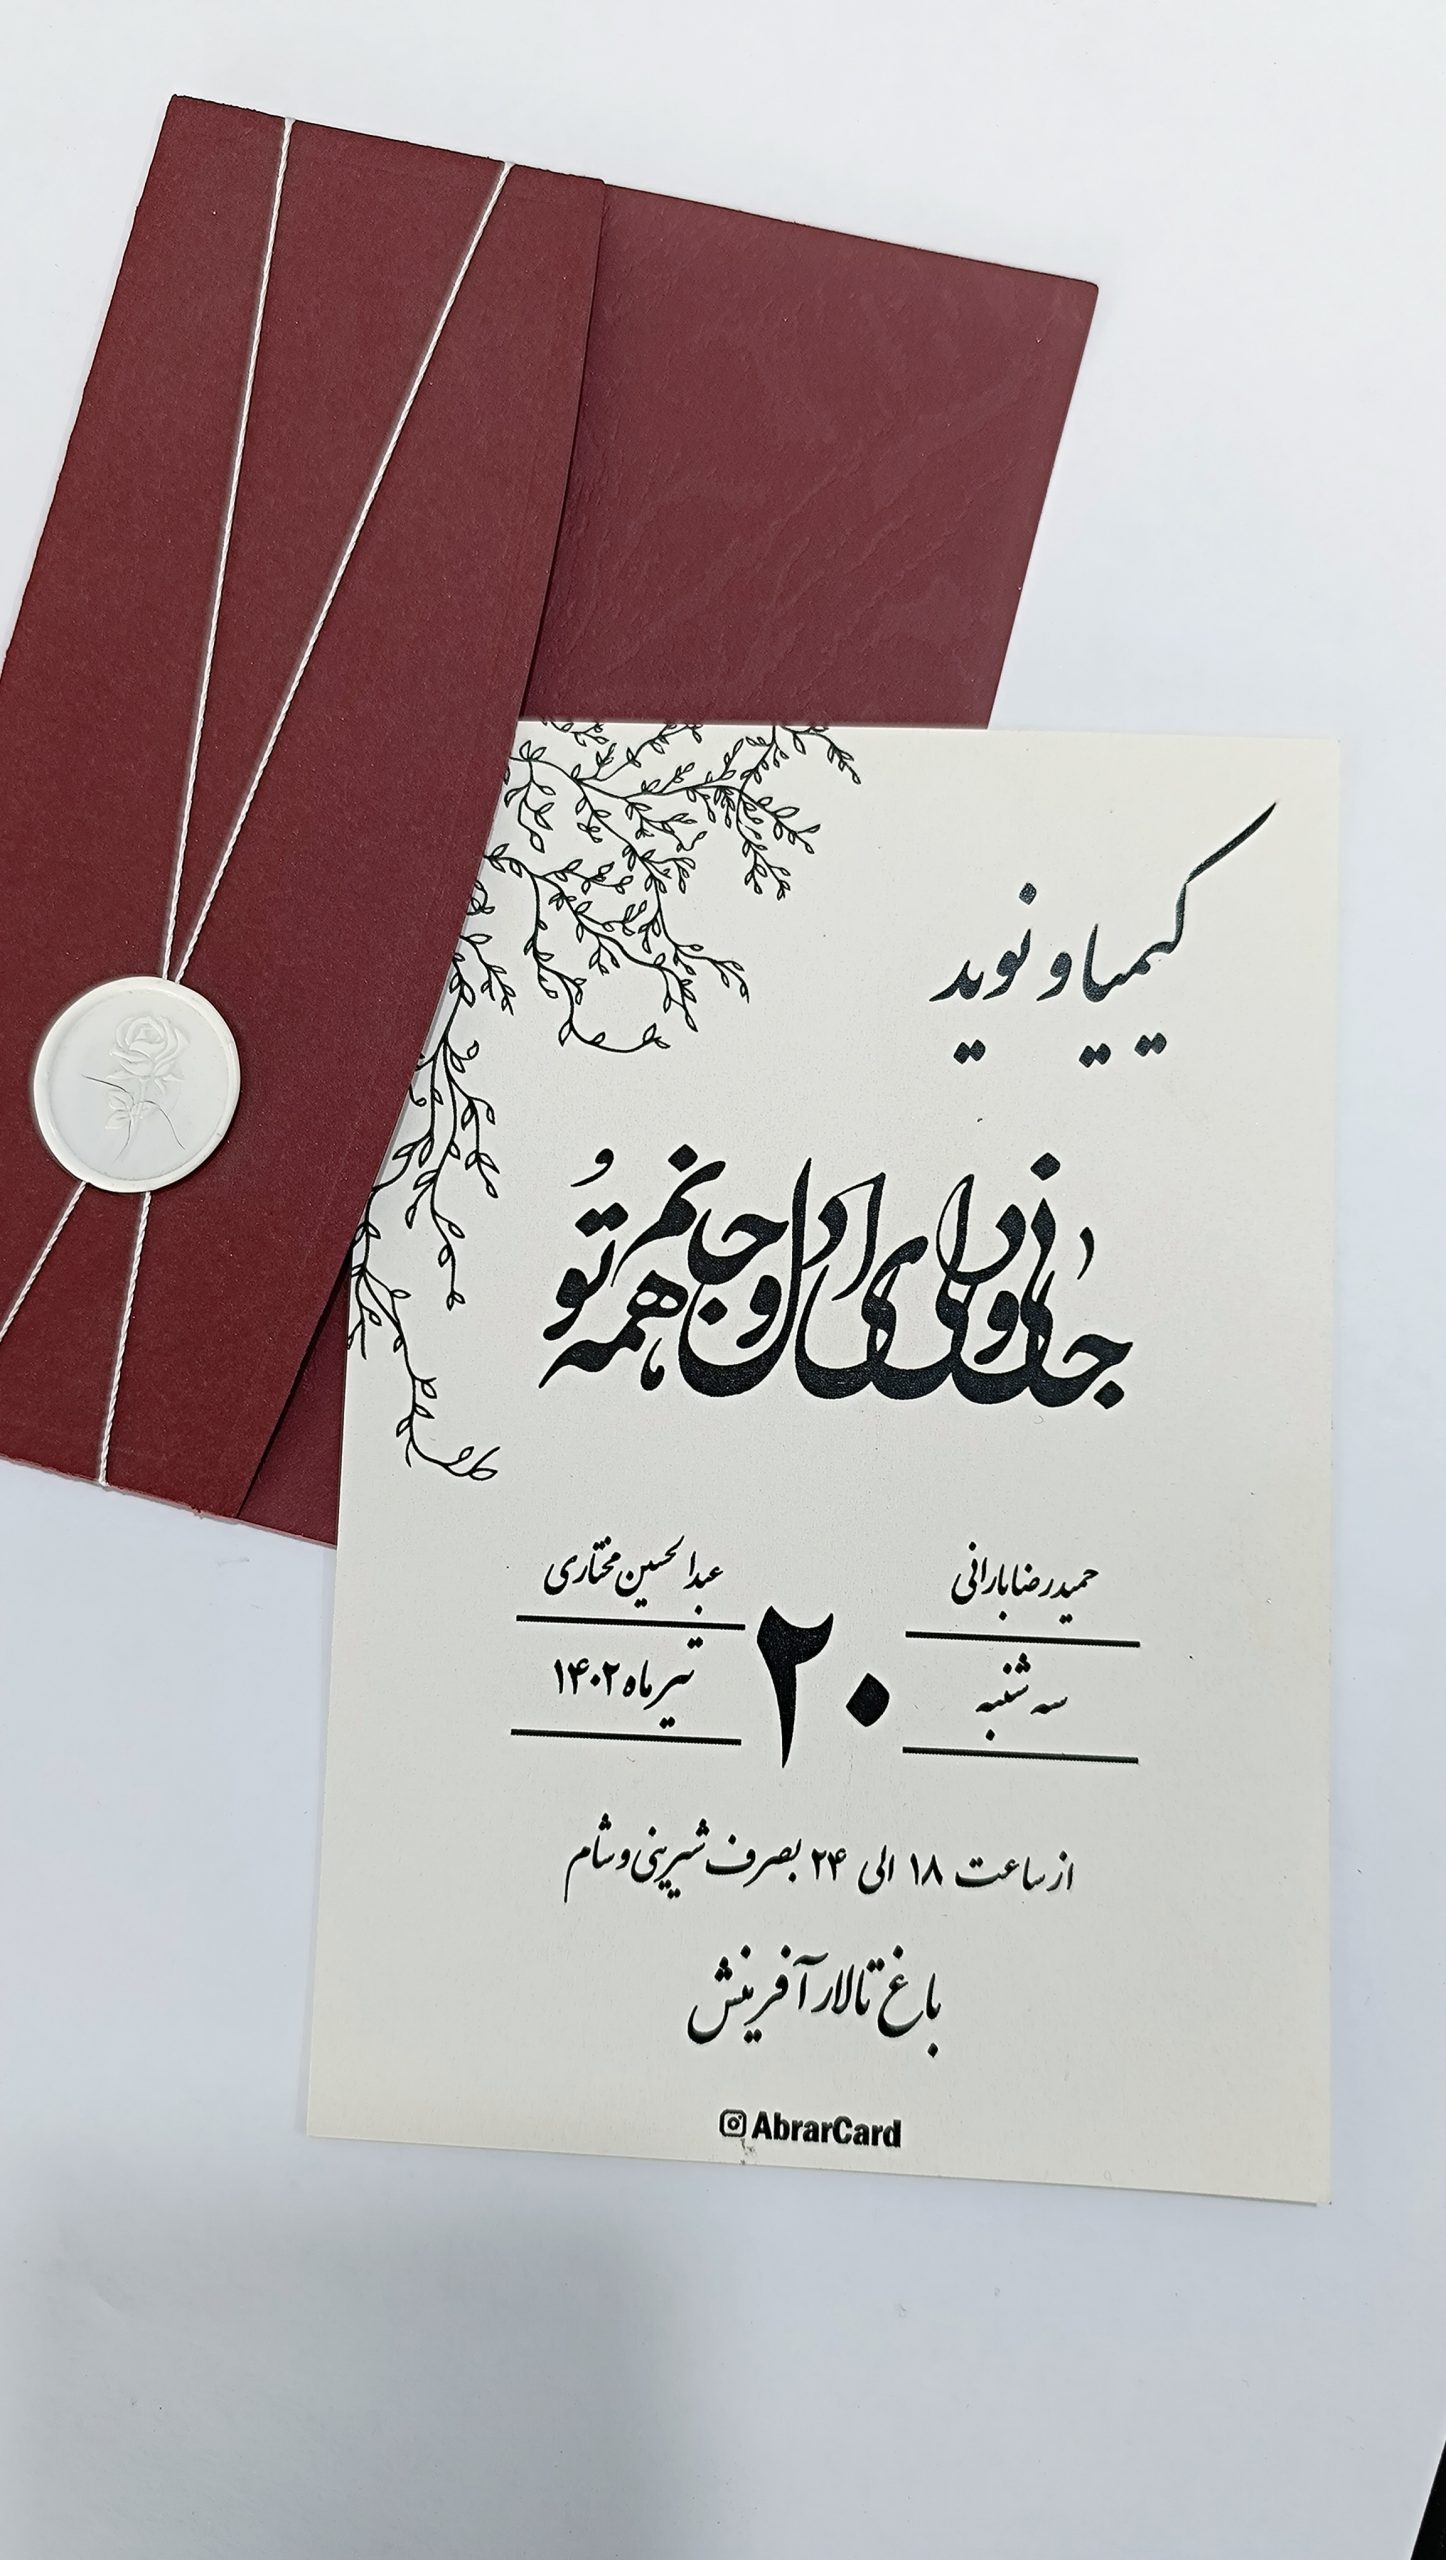 کیمیا و نوید
جاودانه در دل و جانم همه تو
حمیدرضا بارانی
عبدالحسین مختاری
سه شنبه
۲۰
تیر ماه ۱۴۰۲
از ساعت ۱۸ الی ۲۴ بصرف شیرینی و شام
باغ تالار آفرینش
AbrarCard